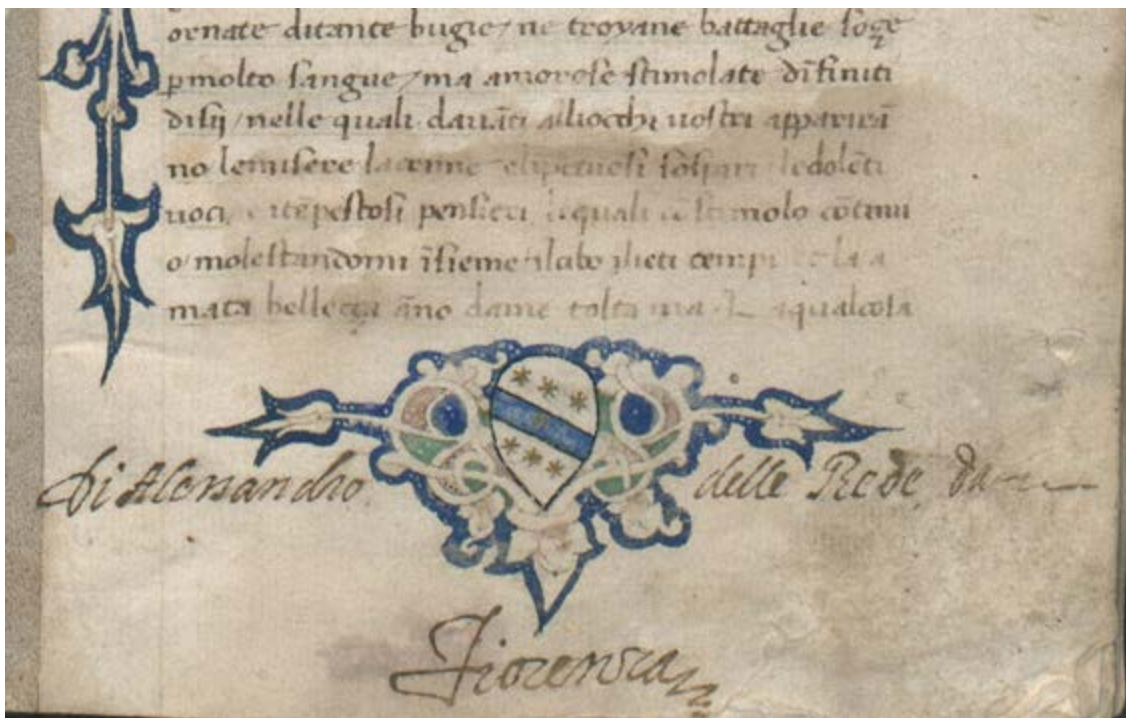 ornate ditante bugie / ne troyane battaglie soze
p̱molto sangue / ma amorose stimolate dīfiniti
disij / nelle quali davāti alliocchi uostri apparirā
no lemisere lacrime elipetuosi sospiri ledolēti
uoci, e itēpestosi pensieri, lequali cō stimolo cōtinu
o molestandomi īsieme ilabo ilieti tempi et la a
mata bellecça āno dame tolta uia. Laqualcosa
Di Alessandro delle Rede da
Fiorenza